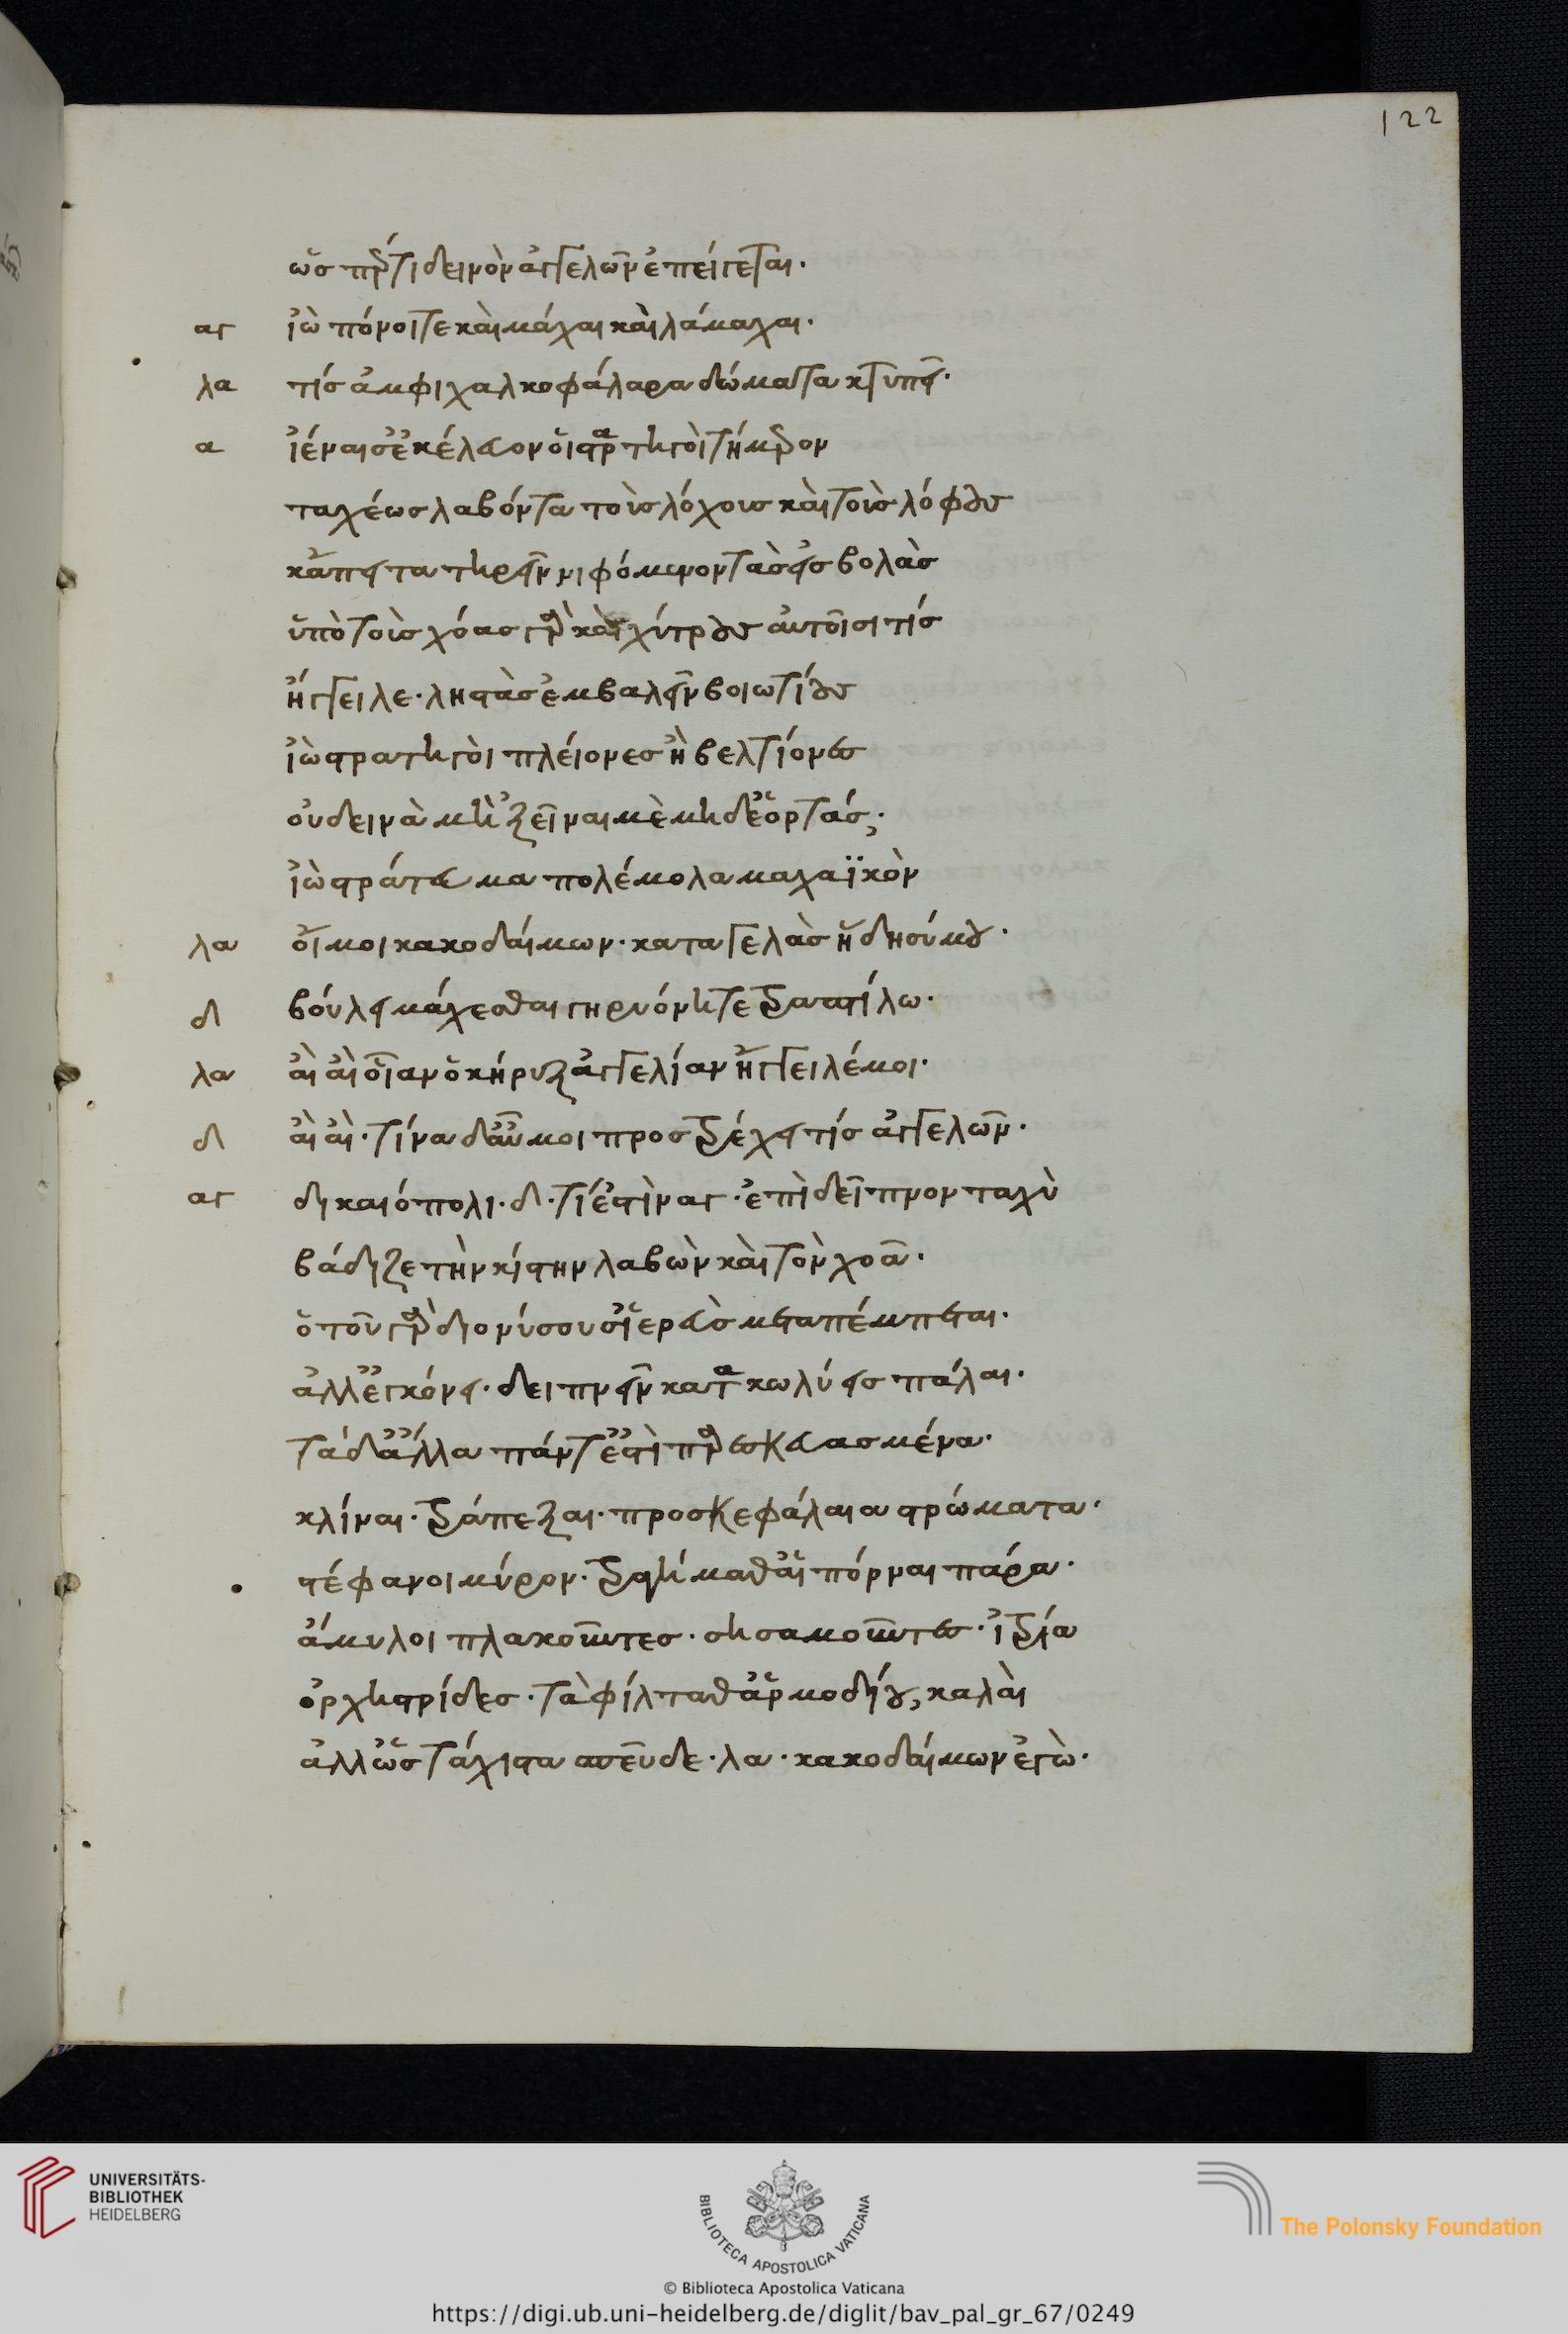 122
ὥσπερ τι δεινὸν ἀγγελῶν ἐπείγεται·
αγ ἰὼ πόνοι τε καὶ μάχαι καὶ λάμαχαι·
λα τίς ἀμφι χαλκοφάλαρα δώματα κτυπεῖ·
α ἰέναι σ' ἐκέλευον οἱ στρατηγοὶ τήμερον
ταχέως λαβόντα τοὺς λόχους καὶ τοὺς λόφους
κἄπειτα τηρεῖν νιφόμενον τὰς εἰσβολὰς
ὑπὸ τοὺς χόας γὰρ καὶ χύτρους αὐτοῖσι τίς
ἤγγειλε· ληστὰς ἐμβαλεῖν βοιωτίους
ἰὼ στρατηγοὶ πλείονες ἢ βελτίονες
οὐ δεινὰ μὴ 'ξεῖναι μὲ μηδ' ἑορτάς;·
ἰὼ στράτευμα πολέμολαμαχαϊκὸν
λα οἴμοι κακοδαίμων· καταγελᾶς ἤδη σύ μου·
δι βούλει μάχεσθαι γηρυόνη τετραπτίλω·
λα αἰ αἲ οἵαν ὁ κήρυξ ἀγγελίαν ἤγγειλέ μοι·
δι αἰ αἲ· τίνα δ' αὖ μοι προστρέχει τίς ἀγγελῶν·
αγ δικαιόπολι· δι· τί ἐστὶν αγ· ἐπὶ δεῖπνον ταχὺ
βάδιζε τὴν κίστην λαβὼν καὶ τὸν χοᾶ·
ὁ τοῦ γὰρ διονύσου σ' ἱερεὺς μεταπέμπεται·
ἀλλ' ἐγκόνει· δειπνεῖν κατακωλύεις πάλαι·
τὰ δ' ἄλλα πάντ' ἐστὶ παρεσκευασμένα·
κλίναι· τράπεζαι· προσκεφάλαια στρώματα·
στέφανοι μύρον· τραγήμαθ' αἱ πόρναι πάρα·
ἄμυλοι πλακοῦντες· σησαμοῦντες· ἴτρια
ὀρχηστρίδες· τὰ φίλταθ' ἁρμοδίου, καλαὶ
ἀλλ' ὡς τάχιστα σπεῦδε· λα· κακοδαίμων ἐγὼ·
UNIVERSITÄTS-
BIBLIOTHEK
HEIDELBERG
BIBLIOTECA APOSTOLICA VATICANA
The Polonsky Foundation
© Biblioteca Apostolica Vaticana
https://digi.ub.uni-heidelberg.de/diglit/bav_pal_gr_67/0249